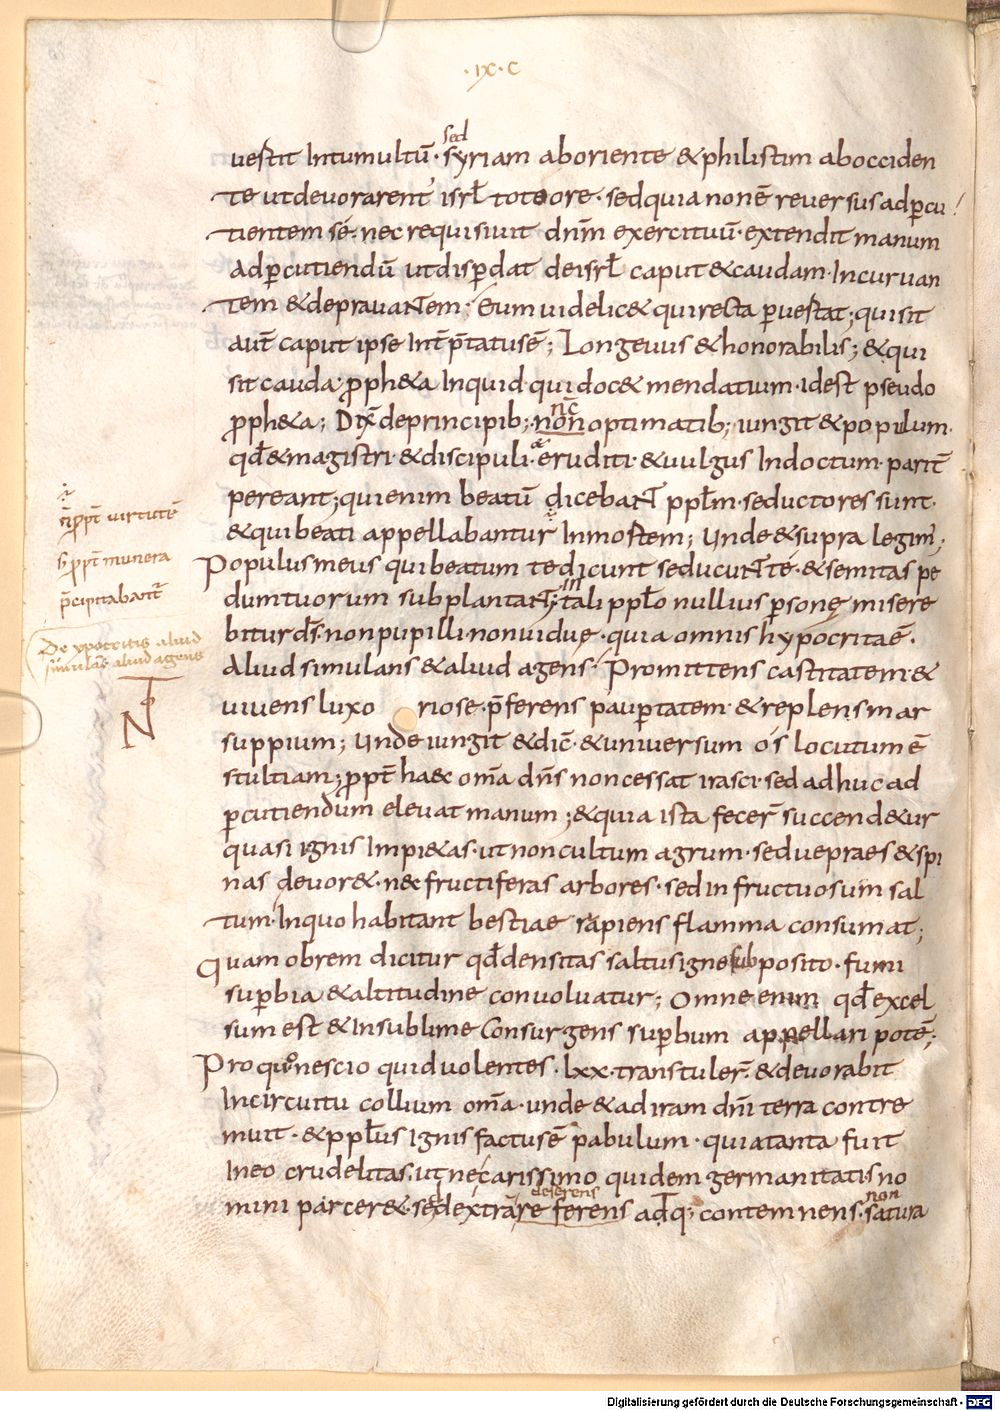 ·ix·c
sed
uestit Intumultū· syriam aboriente &philistim abocciden
te utdevorarent isrƚ totoore· sedquianonē reuersusadꝑcu
tientem sé· nec requisiuit dnm̄ exercituū· extendit manum
Adꝑcutiendū utdisꝑdat deisrƚ caput &caudam· Incuruan
tem &deprauaNTem; Eum uidelic& quirecta ꝑuestat; quisit
aut̄ caput ipse Int̄p̄tatusē; Longeuus &honorabilis; &qui
sit cauda· ꝓph&a Inquid· qui doc& mendatium· idest pseudo
ꝓph&a; Dix̄ deprincipib; non optimatib; iungit &populum·
nc̄
qđ&magistri· &discipuli· eruditi· &uulgus Indoctum· parit̄
pereant; quienim beatū dicebaNT ppƚm· seductores sunt·
&quibeati appellabantur Inmostem; Unde &supra legim̄;
Populusmeus quibeatum tedicunt seducuNT té· &semitas pe
dumtuorum subplantaNT; tali ppƚo nullius ꝑsonę misere
In
biturds̄· nonpupilli· nonuiduę· quia omnis hypocritaē·
Aliud simulans &aliud agens· Promittens castitatem· &
uiuens luxo riose· p̄ferens pauꝑtatem· &replens mar
suppium; Unde iungit &dic̄· &uniuersum os locutumē
stultiam; ꝓpt̄ haec om̄a dn̄s noncessat irasci· sed adhuc ad
ꝑcutiendum eleuat manum; &quia ista fecer̄ succend&ur
quasi ignis Impi&as· utnoncultum agrum· seduepraes &spi
nas deuor&· nec fructiferas arbores· sed in fructuosum sal
tum· Inquo habitant bestiae rapiens flamma consumat;
Quam obrem dicitur qđdensitas saltusigne subposito· fumi
suꝑbia &altitudine conuoluatur; Omne enim qđ excel
sum est &Insublime Consurgens suꝑbum appellari potē;
Pro quo nescio quid uolentes· lxx· transtuler̄· &devorabit
Incircuitu collium om̄a· unde &ad iram dn̄i terra contre
muit· &ppƚus ignis factusē pabulum· quiatanta fuit
Ineo crudelitas· ut necarissimo quidem germanitatis no
mini parcer&· sedextrare ferens adq; contemnens· satura
deserens
non
ꝓpt̄ uirtutē
s ꝓpt̄ munera
p̄cipitabant̄
De ypocritis aliud
simulās aliud agens
Digitalisierung gefördert durch die Deutsche Forschungsgemeinschaft - DFG